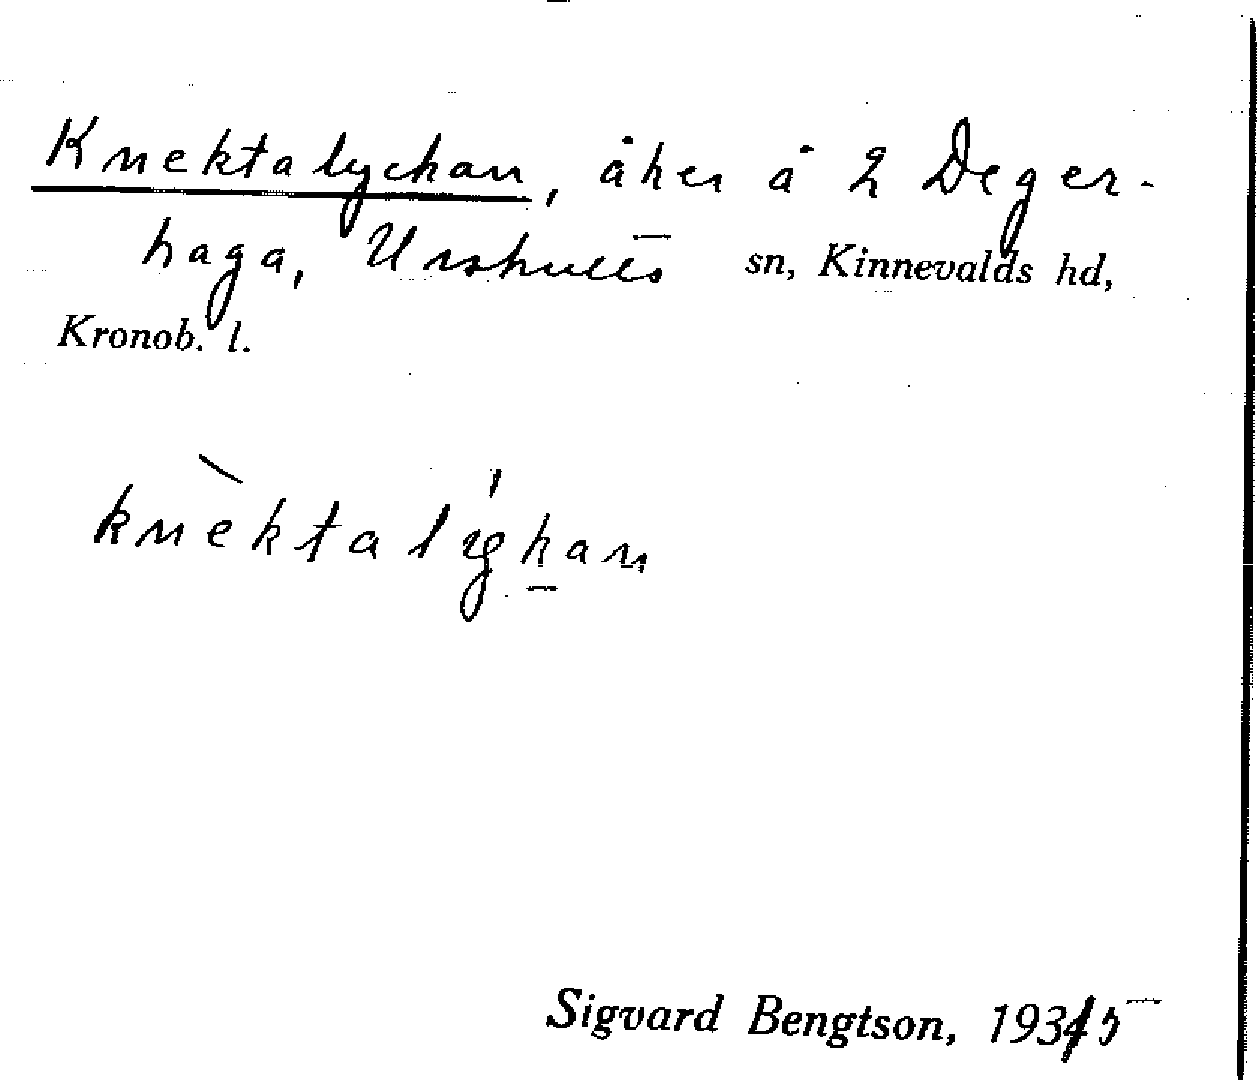 Knektalyckan, åker å 2 Deger-
haga, Urshults sn, Kinnevalds hd,
Kronob. l.
knèktalýkan
Sigvard Bengtson, 1935